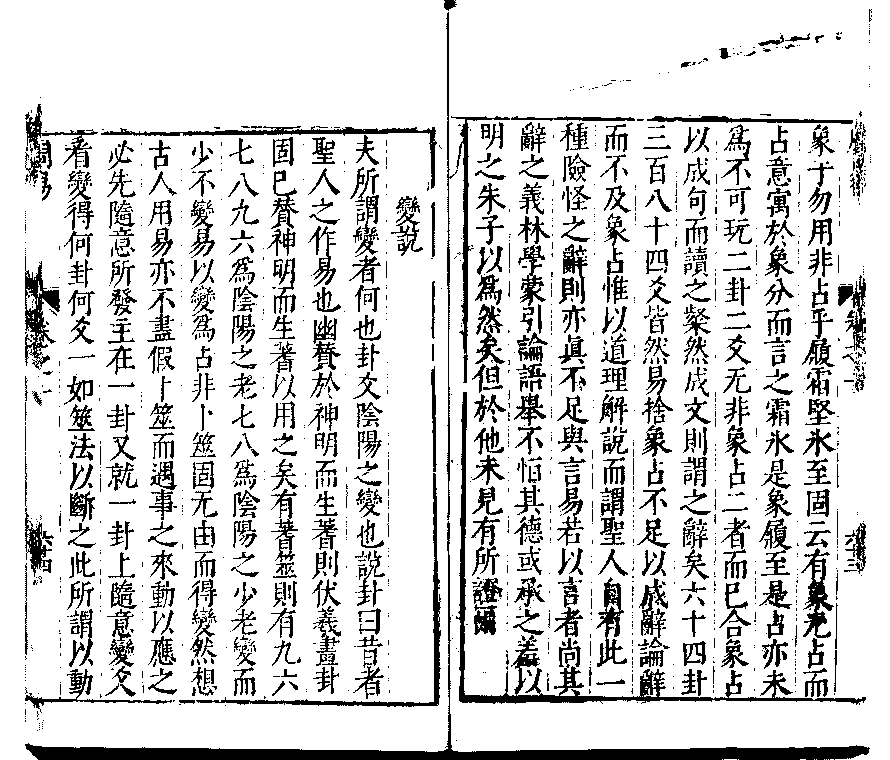 象乎勿用非占乎履霜堅氷至固云有象无占而
占意寓於象分而言之霜氷是象履至是占亦未
爲不可玩二卦二爻无非象占二者而已合象占
以成句而讀之粲然成文則謂之辭矣六十四卦
三百八十四爻皆然易捨象占不足以成辭論辭
而不及象占惟以道理解說而謂聖人自有此一
種險怪之辭則亦眞不足與言易若以言者尚其
辭之義林學蒙引論語舉不恒其德或承之羞以
明之朱子以爲然矣但於他未見有所證爾
變說
夫所謂變者何也卦爻陰陽之變也說卦曰昔者
聖人之作易也幽贊於神明而生蓍則伏羲畫卦
固已賛神明而生蓍以用之矣有蓍筮則有九六
七八九六爲陰陽之老七八爲陰陽之少老變而
少不變易以變爲占非卜筮固无由而得變然想
古人用易亦不盡假卜筮而遇事之來動以應之
必先隨意所發主在一卦又就一卦上隨意變爻
看變得何卦何爻一如筮法以斷之此所謂以動
周易
卷之一
六十四